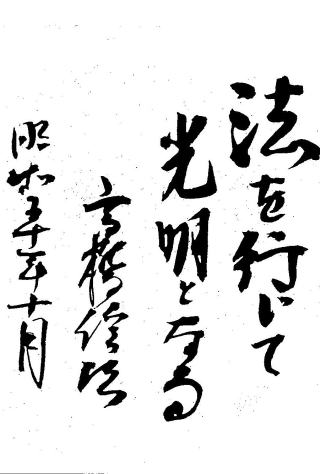 法を行じて
光明となる
高橋信次
昭和五十年十月